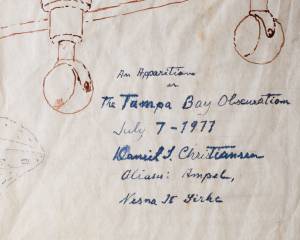 An Apparition
or
The Tampa Bay Obscuration
July 7-1977
Daniel S. Christiansen
Aliases: Ampel,
Vesna It